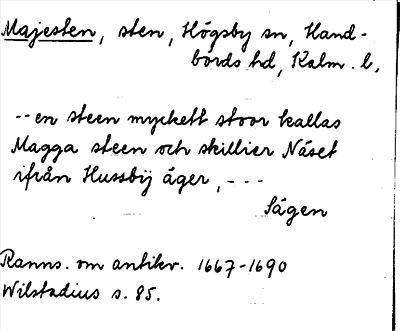 Majesten, sten, Högsby sn, Hand-
bords hd, Kalm. l.
-- en steen myckett stoor kallas
Magga steen och skillier Näset
ifrån Hussbÿ äger, ---
Sägen
Ranns. om antikv. 1667-1690
Wilstadius s. 85.